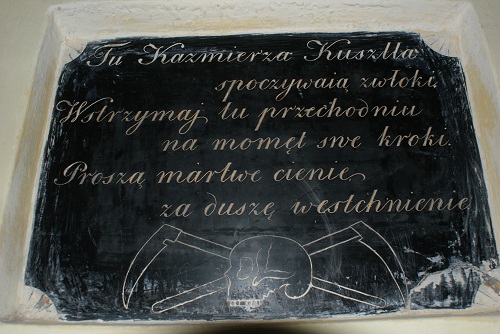 Tu Kazmierza Kusztla
spoczywaią zwłoki,
Wstrzymaj tu przechodniu
na momęt swe kroki.
Proszą martwe cienie
za duszę westchnienie